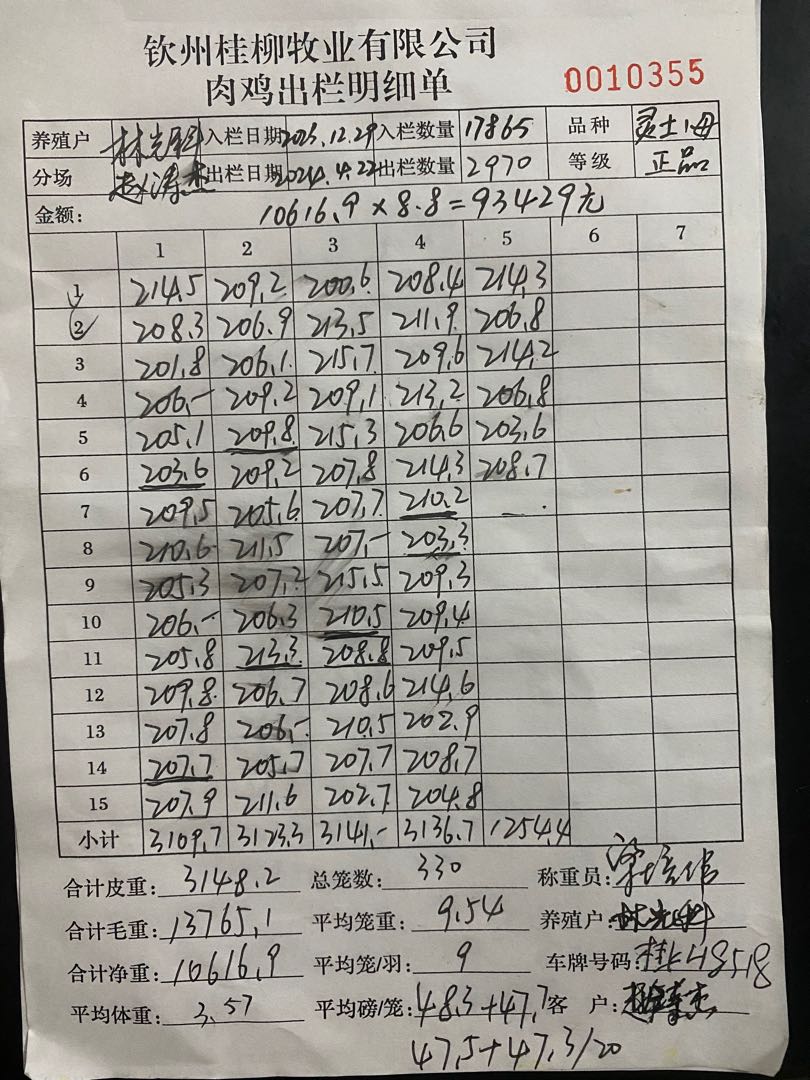 钦州桂柳牧业有限公司
肉鸡出栏明细单 0010355
养殖户 林光科 入栏日期 2023.12.29 入栏数量 17865 品种 灵土1母
分场 出栏日期 2024.4.22 出栏数量 2970 等级 正品
金额: 10616.9×8.8=93429元
1 2 3 4 5 6 7
1 214.5 209.2 200.6 208.4 214.3
2 208.3 206.9 213.5 211.9 206.8
3 201.8 206.1 215.7 209.6 214.2
4 206.- 209.2 209.1 213.2 206.8
5 205.1 209.8 215.3 206.6 203.6
6 203.6 209.2 207.8 214.3 208.7
7 209.5 205.6 207.7 210.2
8 210.6 211.5 207.- 203.3
9 205.3 207.2 215.5 209.3
10 206.- 206.3 210.5 209.4
11 205.8 213.3 208.8 209.5
12 209.8 206.7 208.6 214.6
13 207.8 206.- 210.5 202.9
14 207.7 205.7 207.7 208.7
15 207.9 211.6 202.7 204.8
小计 3109.7 3123.3 3141.- 3136.7 1254.4
合计皮重: 3148.2 总笼数: 330 称重员:
合计毛重: 13765.1 平均笼重: 9.54 养殖户: 林光科
合计净重: 10616.9 平均笼/羽: 9 车牌号码:
平均体重: 3.57 平均磅/笼: 48.3+47.7 客 户:
47.5+47.3/20